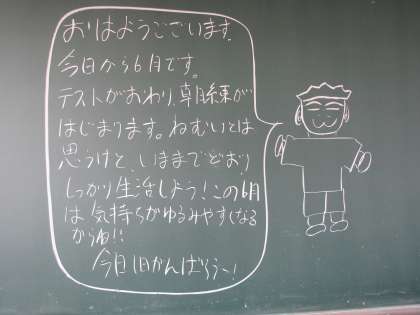 おはようございます。
今日から6月です。
テストがおわり、朝練が
はじまります。ねむいとは
思うけど、いままでどおり
しっかり生活しよう！この6月
は気持ちがゆるみやすくなる
からね!!
今日1日がんばろう〜！